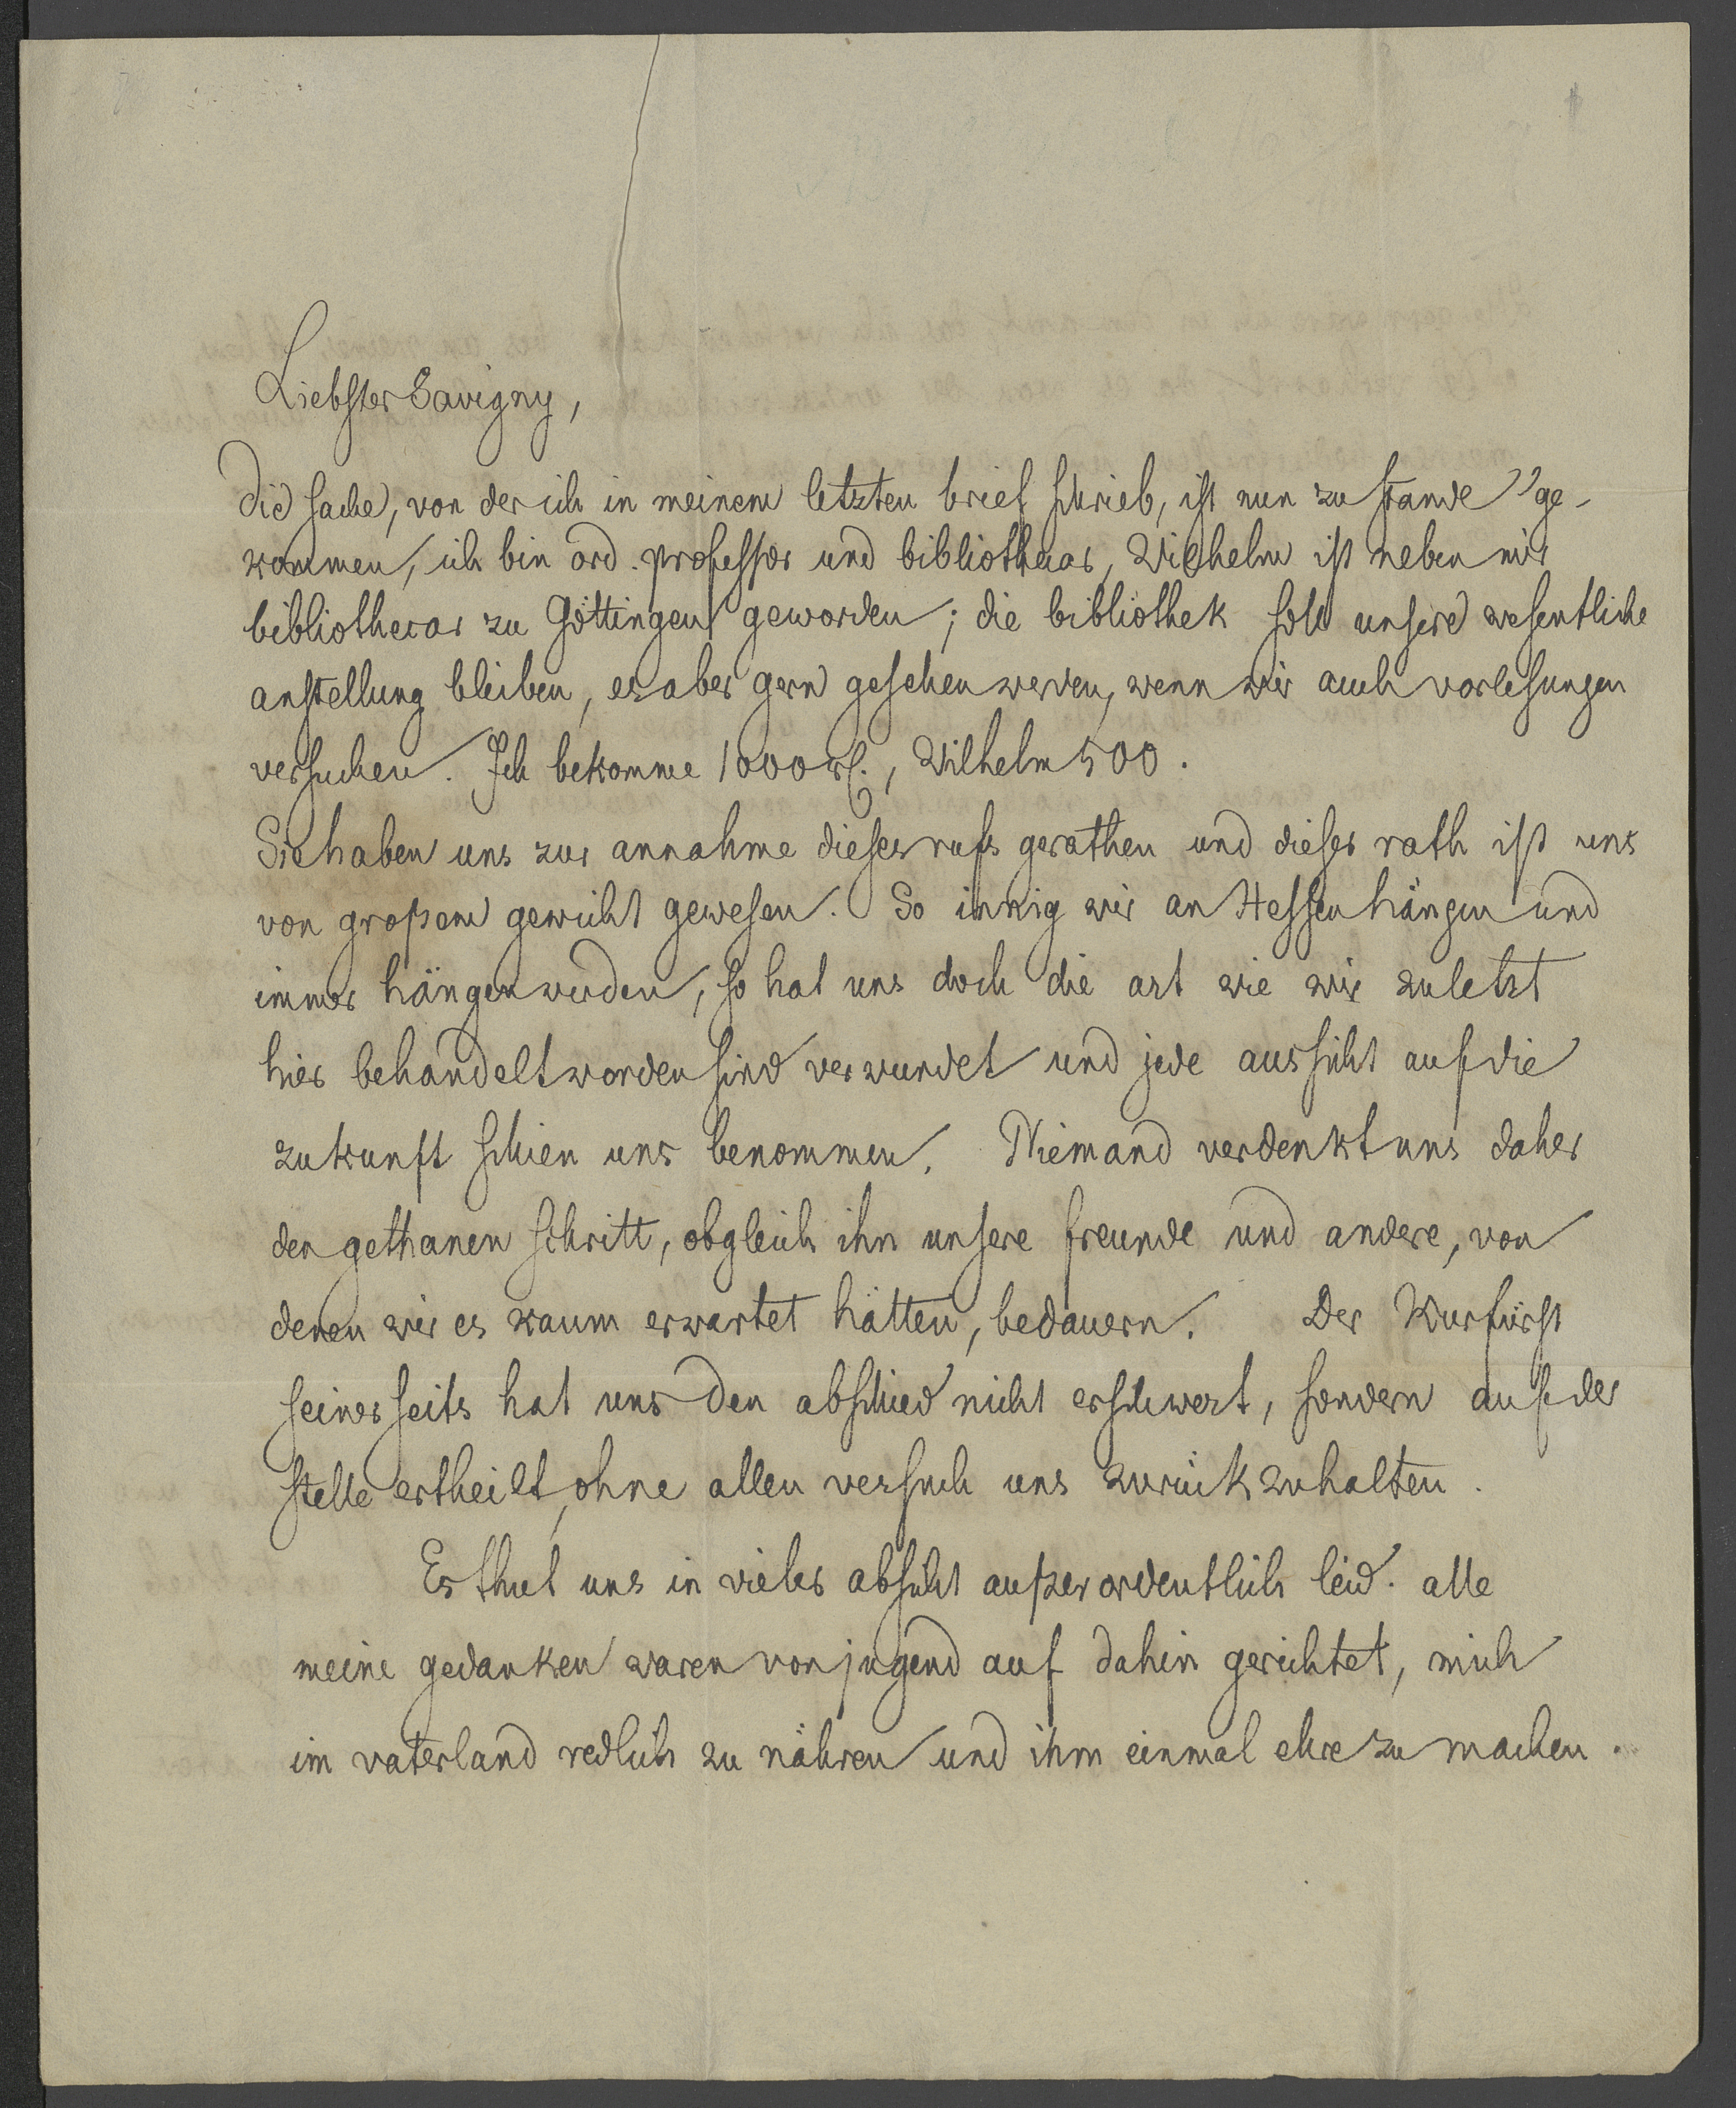 Liebster Savigny,
die sache, von der ich in meinem letzten brief schrieb, ist nun zu stande ge-
kommen, ich bin ord. professor und bibliothecar, Wilhelm ist neben mir
bibliothecar zu Göttingen geworden; die bibliothek soll unsere wesentliche
anstellung bleiben, es aber gern gesehen werden, wenn wir auch vorlesungen
versuchen. Ich bekomme 1000 rl., Wilhelm 500.
Sie haben uns zur annahme dieses rufs gerathen und dieser rath ist uns
von großem gewicht gewesen. So innig wir an Hessen hängen und
immer hängen werden, so hat uns doch die art wie wir zuletzt
hier behandelt worden sind verwundet und jede aussicht auf die
zukunft schien uns benommen. Niemand verdenkt uns daher
den gethanen schritt, obgleich ihn unsere freunde und andere, von
denen wir es kaum erwartet hätten, bedauern. Der Kurfürst
seinerseits hat uns den abschied nicht erschwert, sondern auf der
stelle ertheilt, ohne allen versuch uns zurückzuhalten.
Es thut uns in vieler absicht außerordentlich leid. alle
meine gedanken waren von jugend auf dahin gerichtet, mich
im vaterland redlich zu nähren und ihm einmal ehre zu machen.